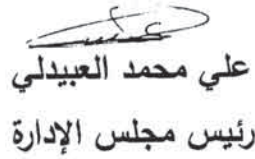 علي محمد العبيدلي
رئيس مجلس الإدارة